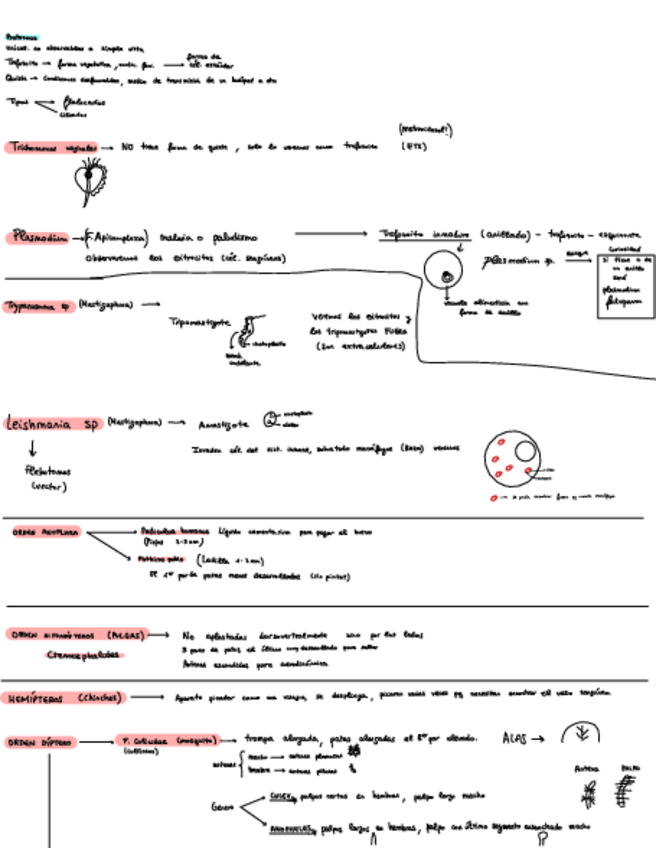 Protozoos
unicel. no observables a simple vista
Trofozoito → forma vegetativa, →
Quiste → condiciones desfavorables, medio de transmisión de un huésped a otro
Tipos Flagelados
Ciliados
(metronidazol!)
Trichomonas vaginales → NO tiene forma de quiste, solo lo vemos como trofozoito (ETS)
Plasmodium → (F. Apicomplexa) malaria o paludismo → Trofozoito inmaduro (anillado) - trofozoito - esquizonte
Observaremos los eritrocitos (cél. sanguíneas)
Plasmodium sp. sangre
Curiosidad
si tiene + de un anillo será plasmodium falciparum
vacuola alimenticia en forma de anillo
Trypanosoma sp (Mastigophora) →
Tripomastigote
membrana ondulante
Veremos los eritrocitos y
los tripomastigotes FUERA
(son extracelulares)
Leishmania sp (Mastigophora) → Amastigote
Invaden cél. del sist. inmune, sobretodo macrófagos (Bazo) veremos
Flebotomos
(vector)
ORDEN ANOPLURA
Pediculus humanus Líquido cementación para pegar al huevo
(Piojos 2-3 mm)
Phthirus pubis (Ladilla 1-2 mm)
El 1er par de patas menos desarrolladas (sin pinzas)
ORDEN SIFONÁPTEROS (PULGAS) → No aplastadas dorsoventralmente sino por los lados
3 pares de patas el último muy desarrollado para saltar
Ctenocephalides
Antenas escondidas para aerodinámica
HEMÍPTEROS (Chinches) → Aparato picador como una navaja, se despliega, pican varias veces pq necesitan encontrar el vaso sanguíneo
ORDEN DÍPTERO → F. Culicidae (mosquito) → trompa alargada, patas alargadas el 3er par elevado. ALAS →
antenas macho → antenas plumosas
hembra → antenas pilosas
Antena Palpo
Género
CULEX, palpos cortos en hembras, palpo largo macho
ANOPHELES, palpos largos en hembras, palpo con último segmento ensanchado macho